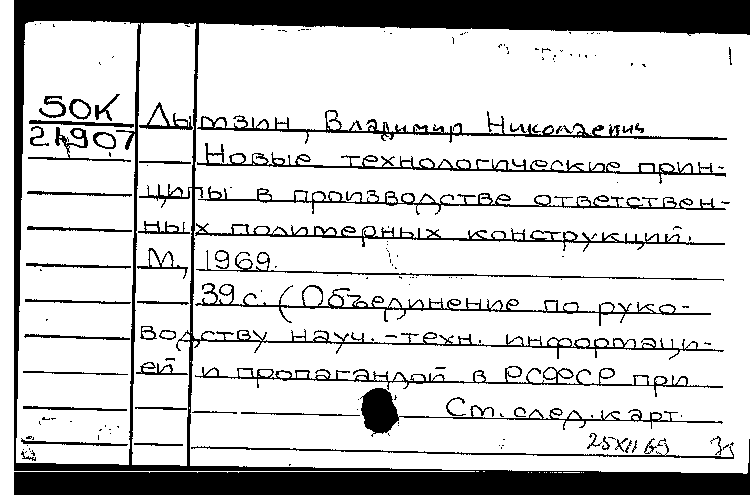 1
50К
Лымзин, Владимир Николаевич
21907
Новые технологические прин-
ципы в производстве ответствен-
ных полимерных конструкций.
М., 1969.
39 с. (Объединение по руко-
водству науч.-техн. информаци-
ей и пропагандой в РСФСР при
См. след. карт.
25 XII 69